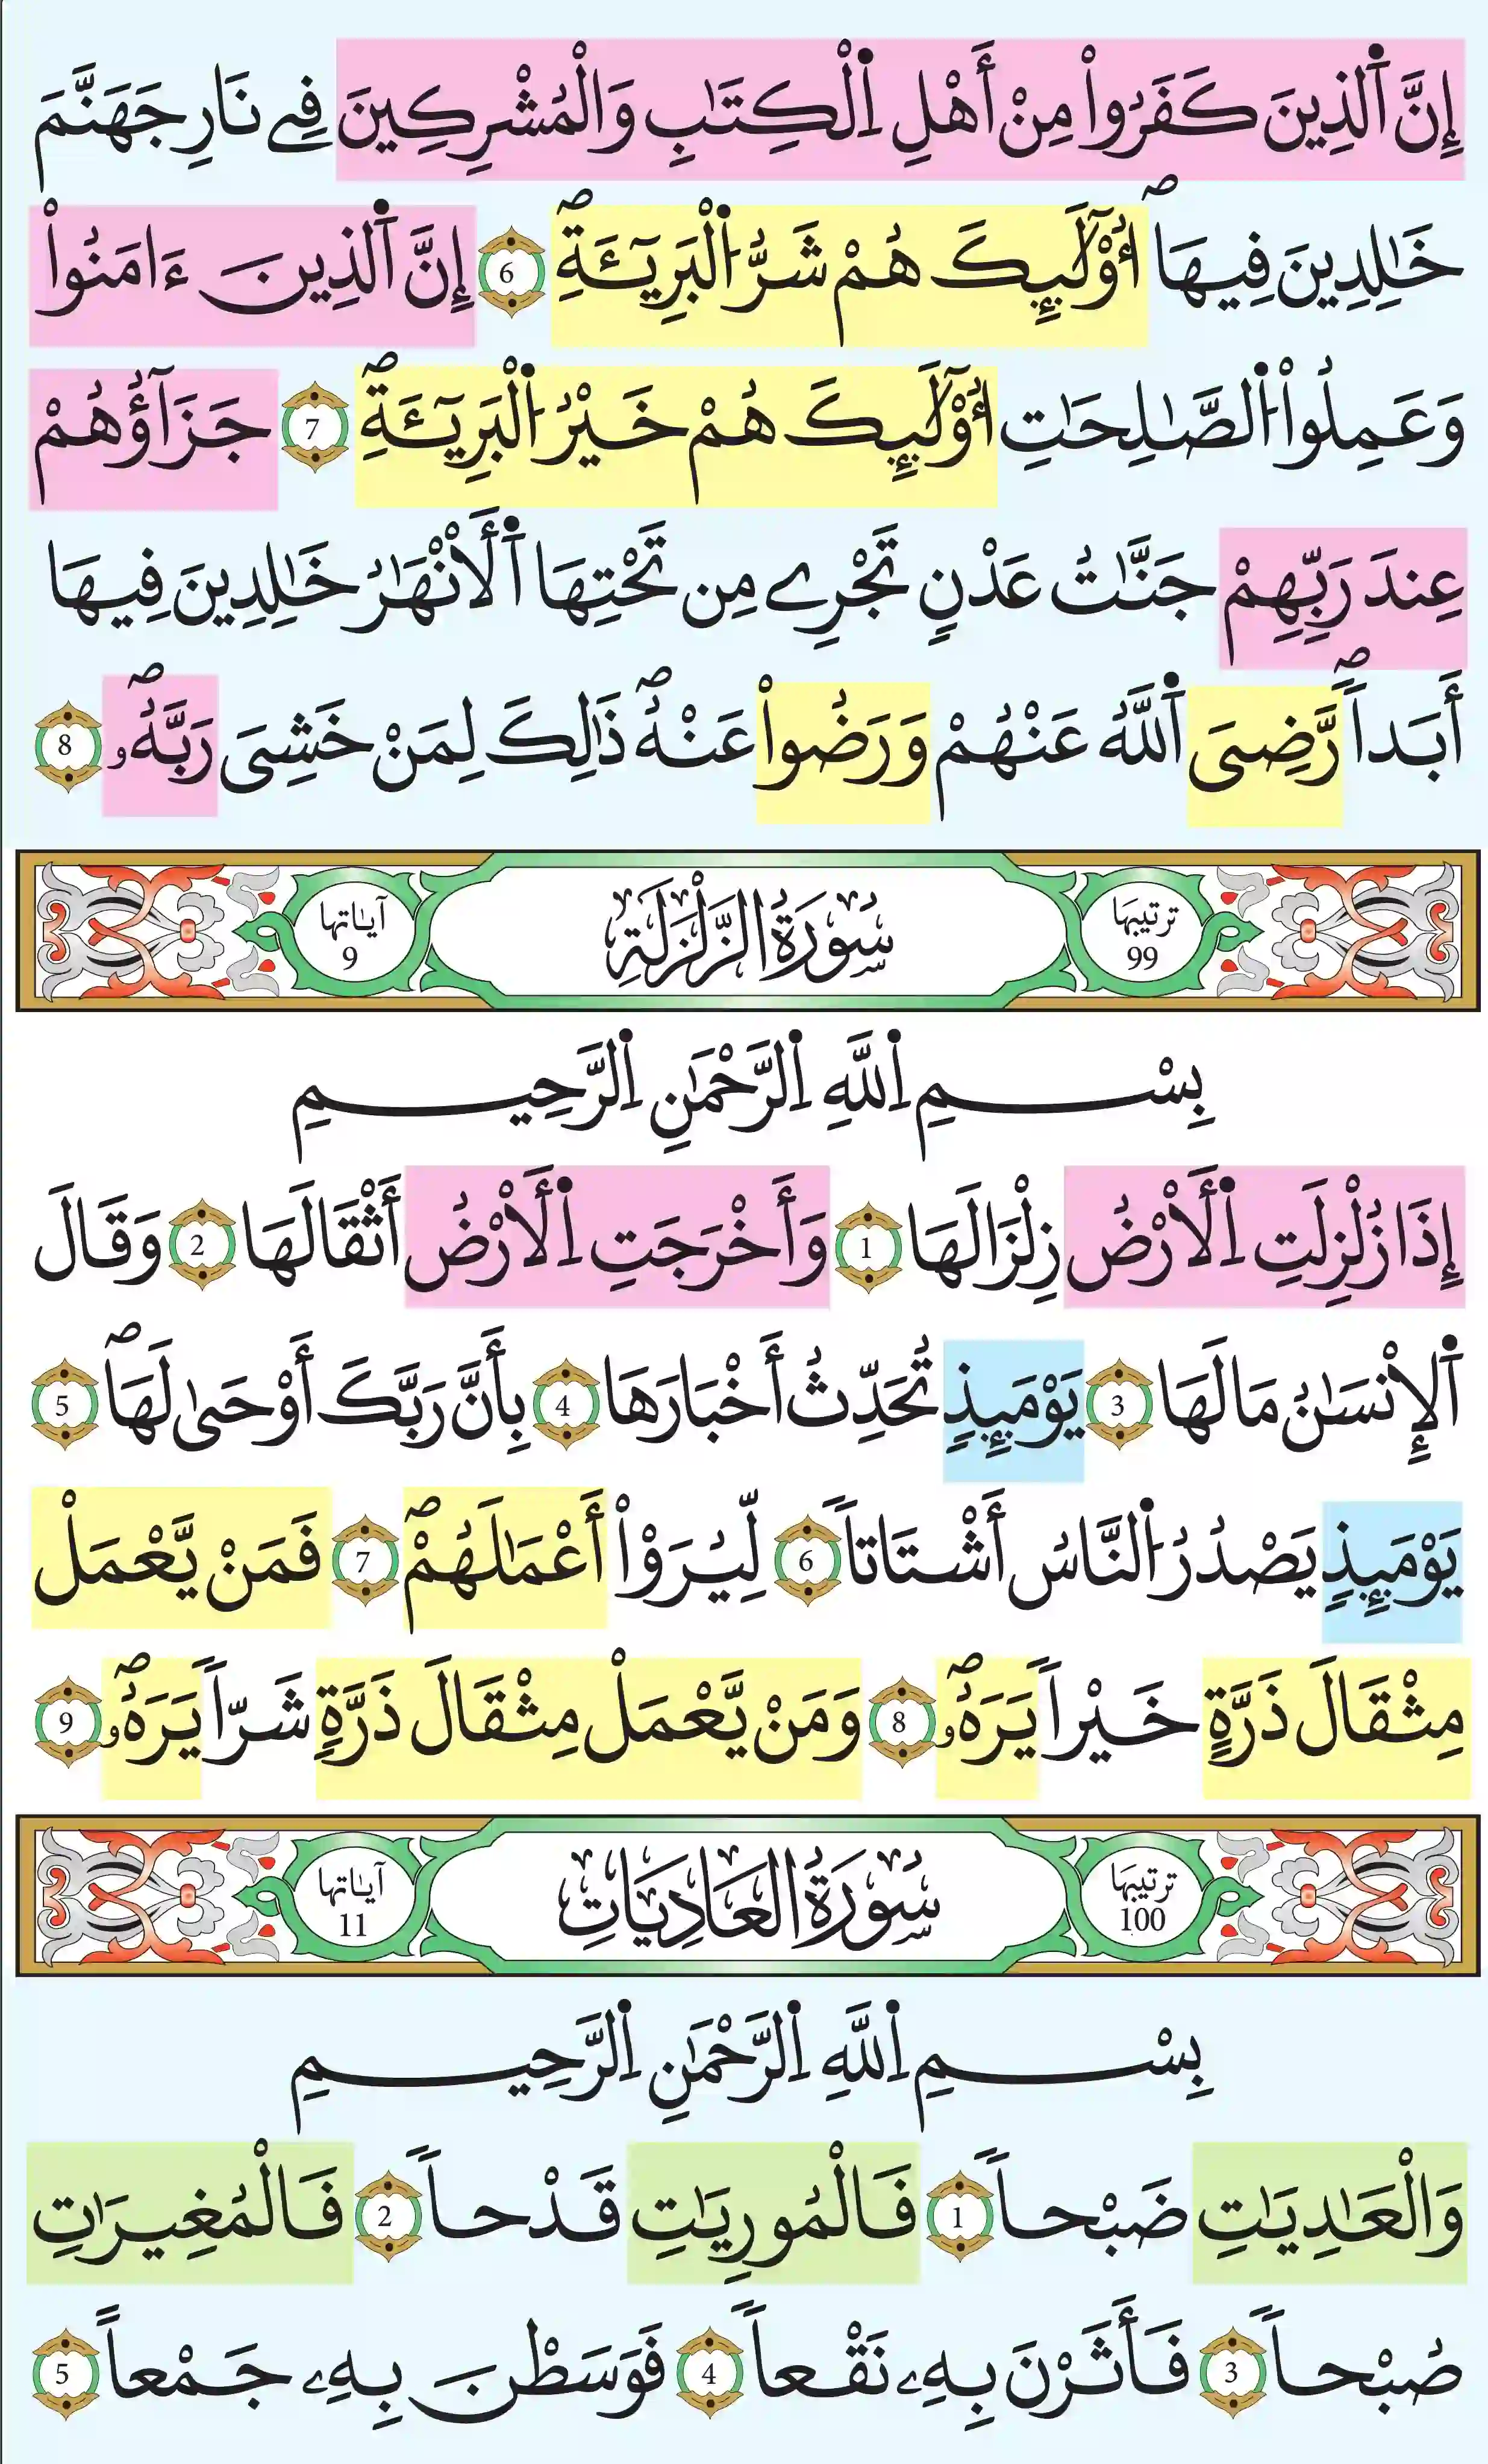 إِنَّ اَ۬لذِينَ كَفَرُواْ مِنْ أَهْلِ اِ۬لْكِتَٰبِ وَالْمُشْرِكِينَ فِے نَارِ جَهَنَّمَ
خَٰلِدِينَ فِيهَاۖ أُوْلَٰٓئِكَ هُمْ شَرُّ اُ۬لْبَرِيٓـَٔةِۖ 6 إِنَّ اَ۬لذِينَ ءَامَنُواْ
وَعَمِلُواْ اُ۬لصَّٰلِحَٰتِ أُوْلَٰٓئِكَ هُمْ خَيْرُ اُ۬لْبَرِيٓـَٔةِۖ 7 جَزَآؤُهُمْ
عِندَ رَبِّهِمْ جَنَّٰتُ عَدْنٍ تَجْرِے مِن تَحْتِهَا اَ۬لَأَنْهَٰرُ خَٰلِدِينَ فِيهَا
أَبَداٗۖ رَّضِيَ اَ۬للَّهُ عَنْهُمْ وَرَضُواْ عَنْهُۖ ذَٰلِكَ لِمَنْ خَشِيَ رَبَّهُۥۖ 8
ترتيبها 99 سُورَةُ الزَّلْزَلَةِ آياتها 9
بِسْمِ اِ۬للَّهِ اِ۬لرَّحْمَٰنِ اِ۬لرَّحِيمِ
إِذَا زُلْزِلَتِ اِ۬لَأَرْضُ زِلْزَالَهَا 1 وَأَخْرَجَتِ اِ۬لَأَرْضُ أَثْقَالَهَا 2 وَقَالَ
اَ۬لِإنسَٰنُ مَا لَهَا 3 يَوْمَئِذٍ تُحَدِّثُ أَخْبَارَهَا 4 بِأَنَّ رَبَّكَ أَوْحَىٰ لَهَاۖ 5
يَوْمَئِذٍ يَصْدُرُ اُ۬لنَّاسُ أَشْتَاتاٗ 6 لِّيُرَوْاْ أَعْمَٰلَهُمْۖ 7 فَمَنْ يَّعْمَلْ
مِثْقَالَ ذَرَّةٍ خَيْراٗ يَرَهُۥۖ 8 وَمَنْ يَّعْمَلْ مِثْقَالَ ذَرَّةٍ شَرّاٗ يَرَهُۥۖ 9
ترتيبها 100 سُورَةُ العَادِيَاتِ آياتها 11
بِسْمِ اِ۬للَّهِ اِ۬لرَّحْمَٰنِ اِ۬لرَّحِيمِ
وَالْعَٰدِيَٰتِ ضَبْحاٗ 1 فَالْمُورِيَٰتِ قَدْحاٗ 2 فَالْمُغِيرَٰتِ
صُبْحاٗ 3 فَأَثَرْنَ بِهِۦ نَقْعاٗ 4 فَوَسَطْنَ بِهِۦ جَمْعاً 5